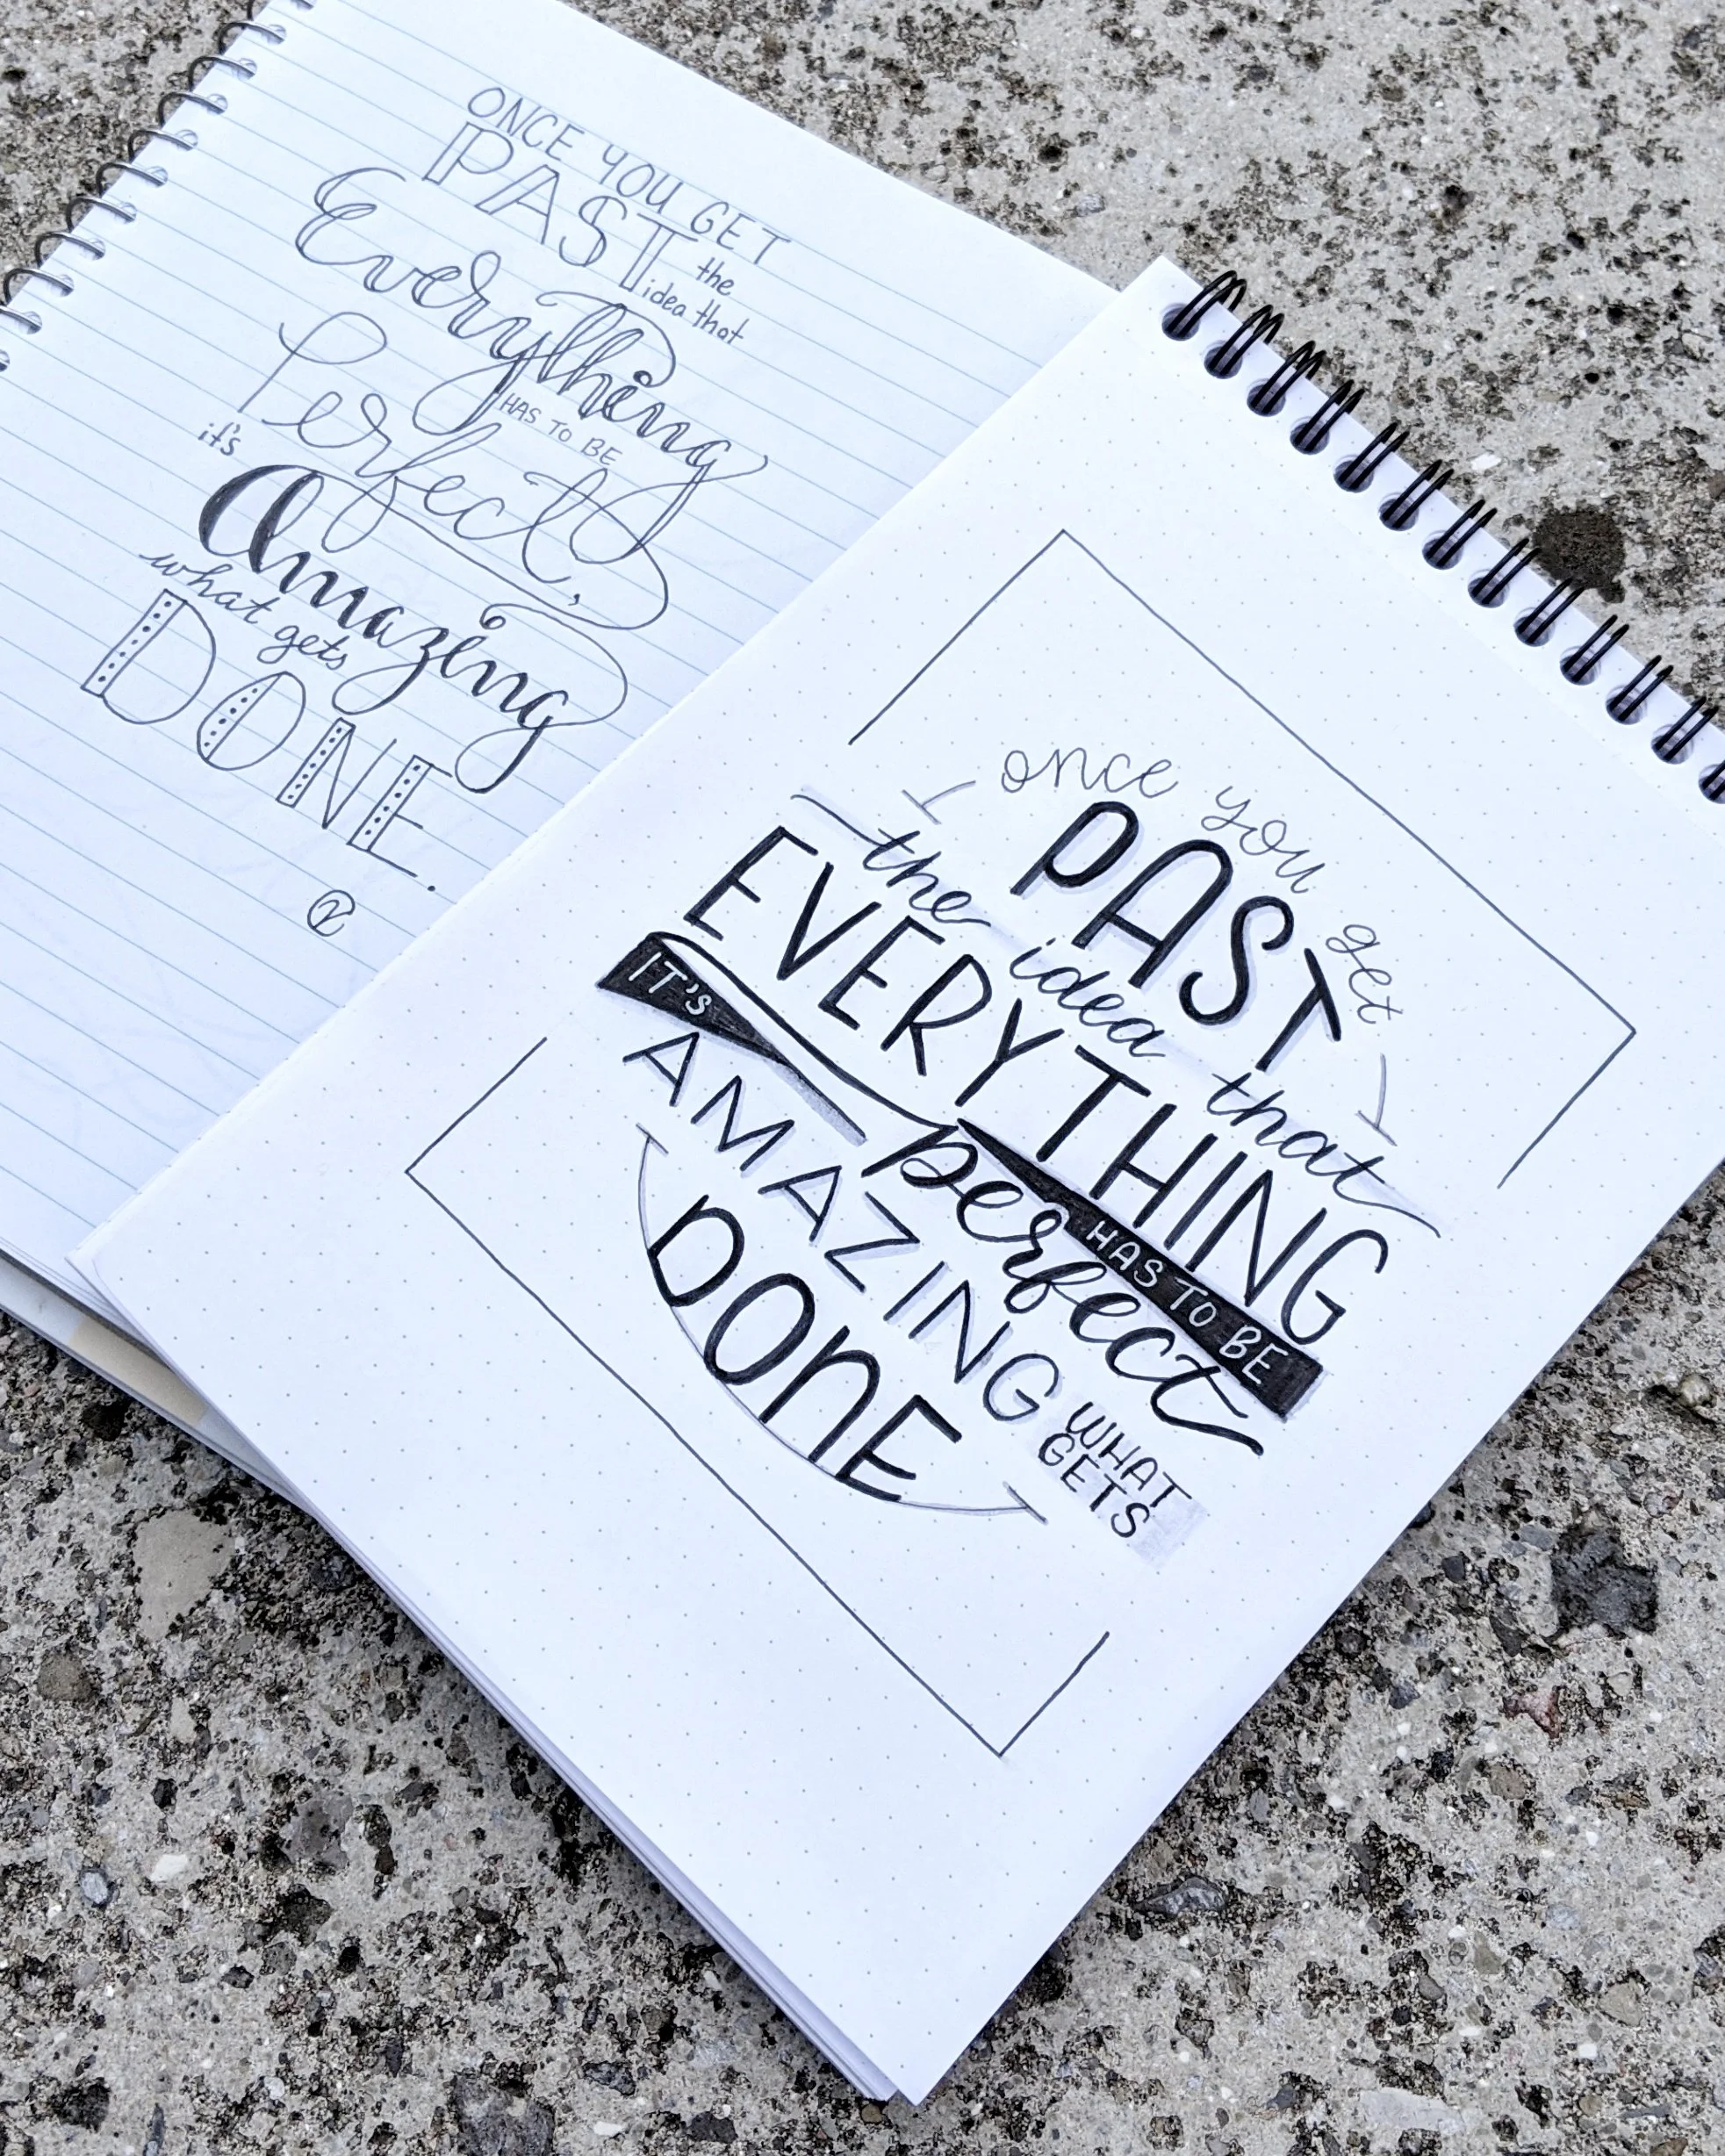 ONCE YOU GET
PAST the
idea that
Everything
HAS TO BE
Perfect,
it's
Amazing
what gets
DONE.
once you get
PAST
the idea that
EVERYTHING
HAS TO BE
perfect
IT'S
AMAZING
WHAT
GETS
DONE